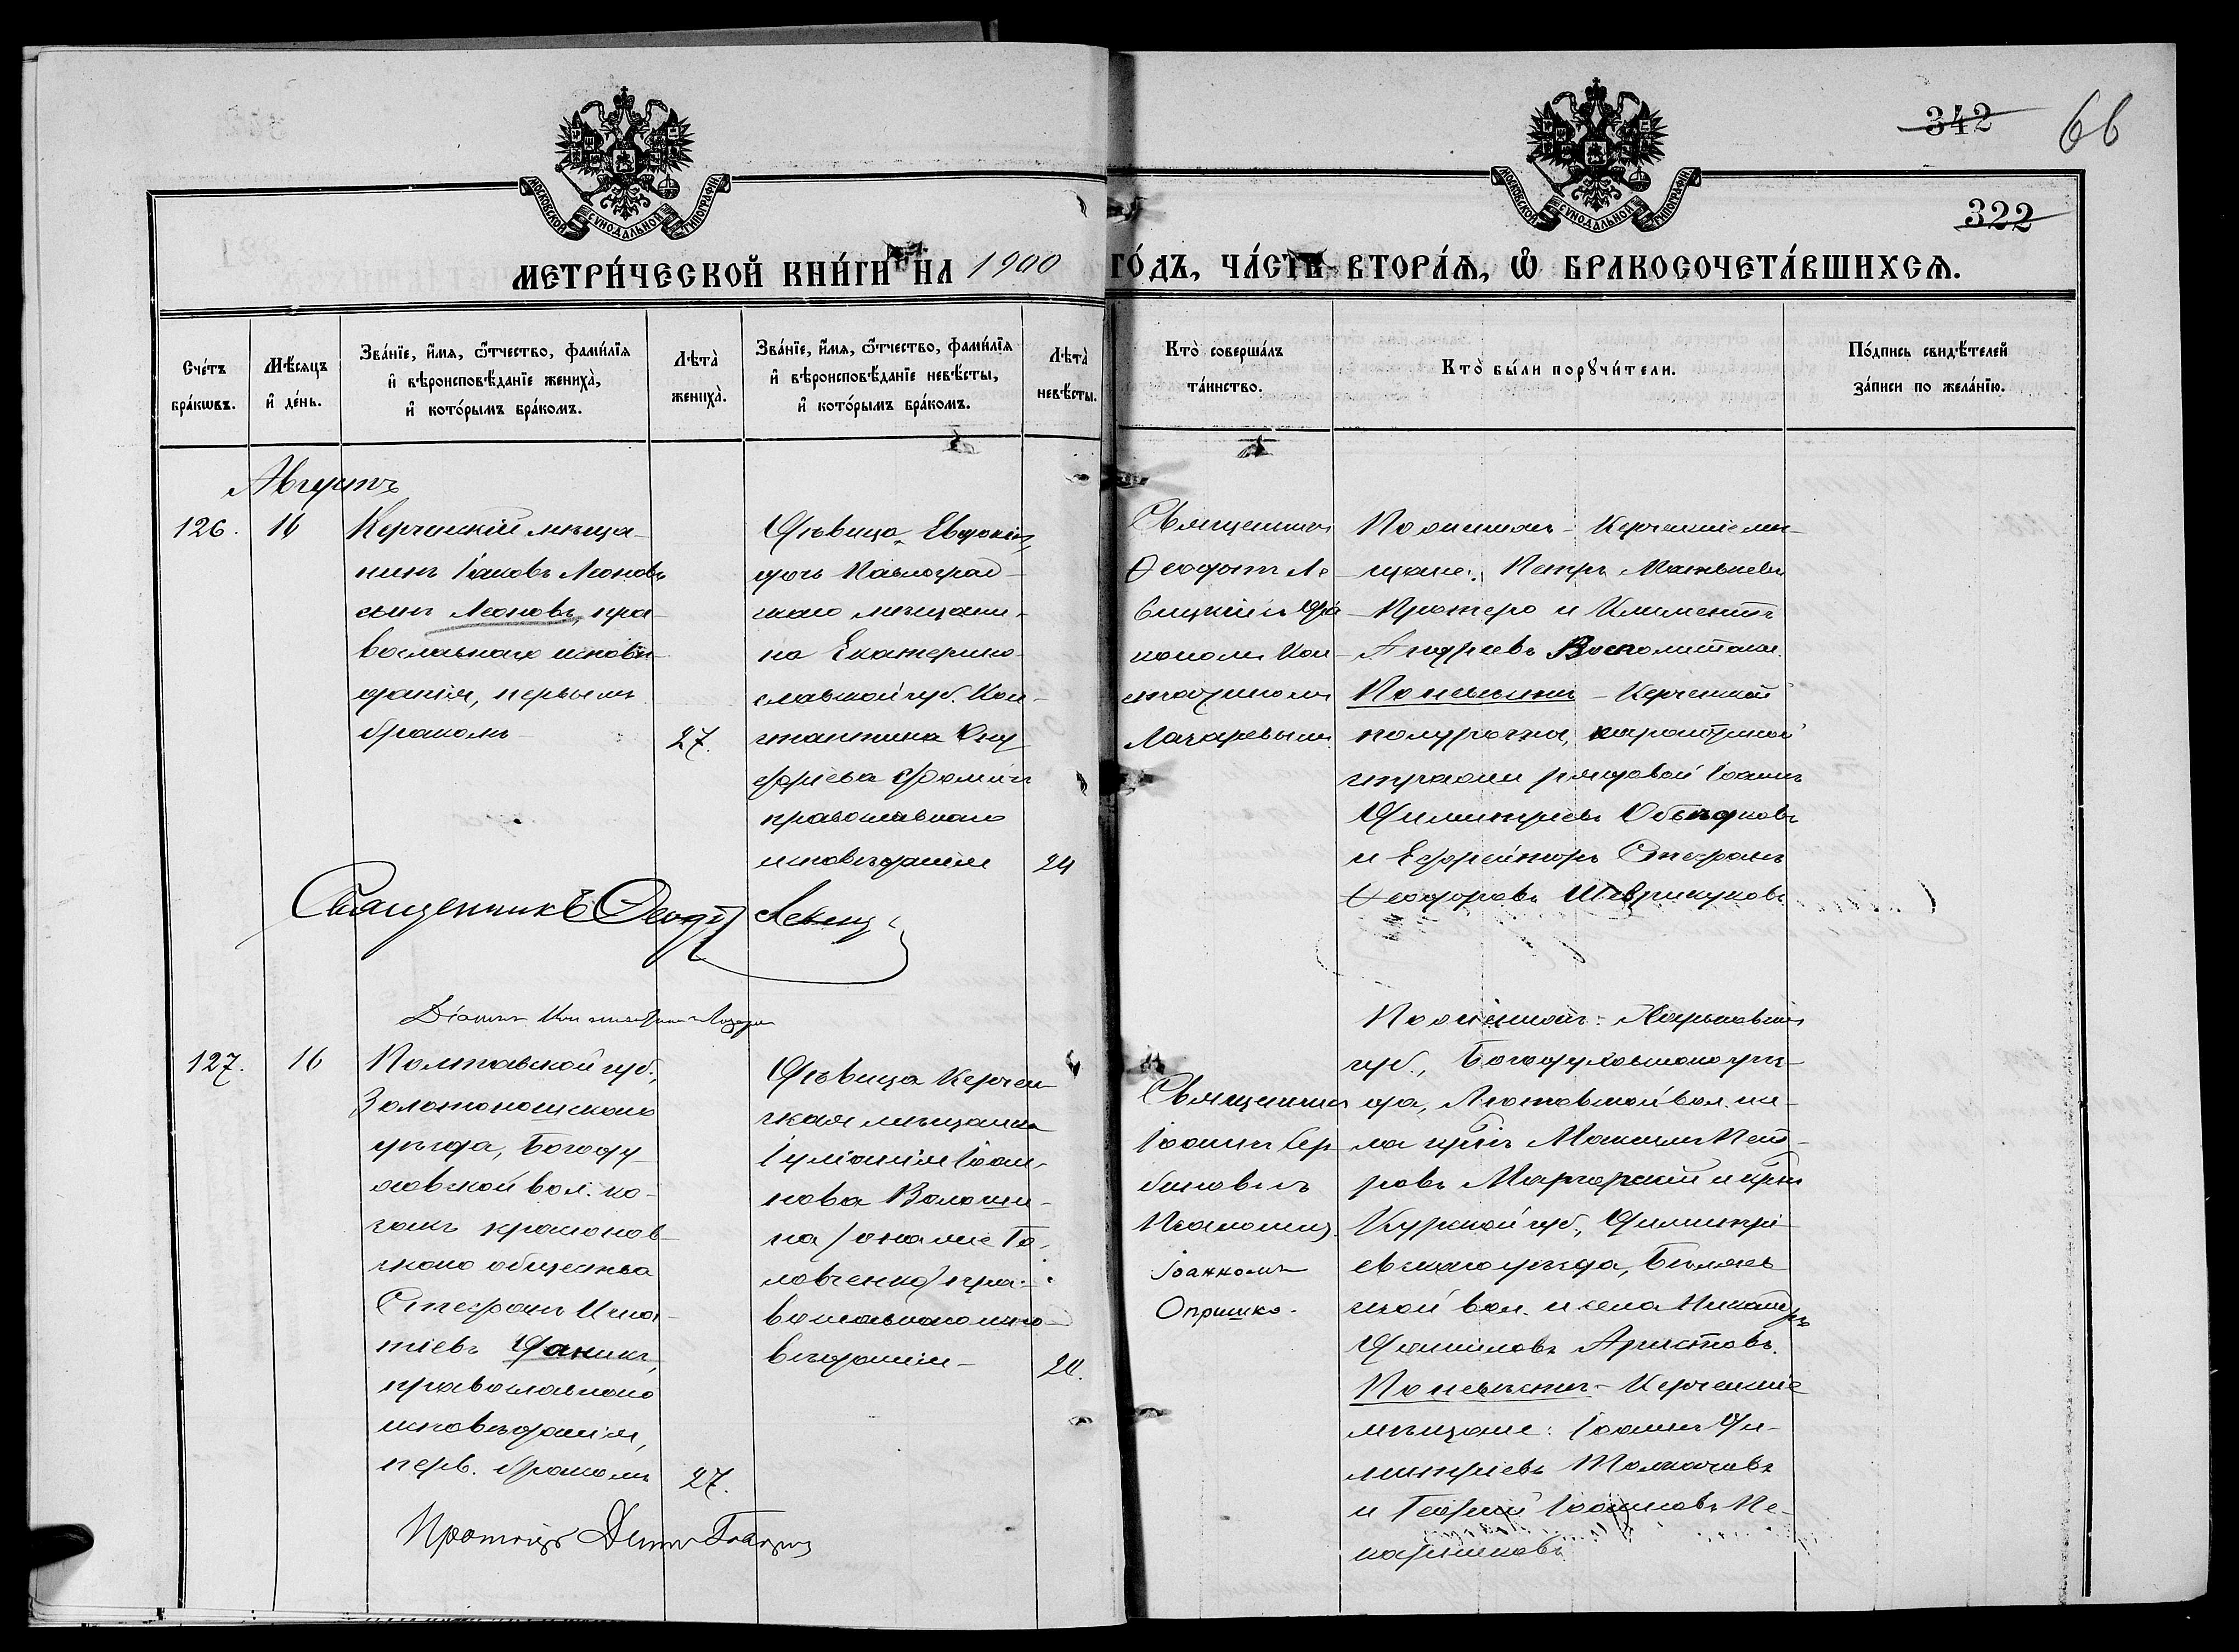 342
66
322
МОСКОВСКОЙ СУНОДАЛЬНОЙ ТИПОГРАФІИ
МОСКОВСКОЙ СУНОДАЛЬНОЙ ТИПОГРАФІИ
МЕТРИ́ЧЕСКОЙ КНИ́ГИ НА 1900 ГО́ДЪ, ЧА́СТЬ ВТОРА́Ѧ, Ѽ БРАКОСОЧЕТА́ВШИХСѦ.
Сче́тъ бра́кѡвъ.
Мѣ́сяцъ и҆ де́нь.
Зва́нїе, и҆́мя, ѻ҆́тчество, фами́лїя
и҆ вѣроисповѣ́данїе жениха̀,
и҆ кото́рымъ бра́комъ.
Лѣта̀ жениха̀.
Зва́нїе, и҆́мя, ѻ҆́тчество, фами́лїя
и҆ вѣроисповѣ́данїе невѣ́сты,
и҆ кото́рымъ бра́комъ.
Лѣта̀ невѣ́сты.
Кто̀ соверша́лъ
та́инство.
Кто̀ бы́ли порꙋчи́тели.
По́дпись свидѣ́телей
за́писи по жела́нїю.
Августъ
126.
16
Керченскій мѣща-
нинъ Іаковъ Леоновъ
сынъ Леоновъ, пра-
вославнаго исповѣ-
данія, первымъ
бракомъ
27.
Дѣвица Евдокія,
дочь Павлоград-
скаго мѣщани-
на Екатерино-
славской губ. Кон-
стантина Ону
фріева Фомина
православнаго
исповѣданія
24
Священникъ
Ѳеодотъ Ле
вицкій съ діа
кономъ Кон
стантиномъ
Лазаревымъ
По женихѣ - Керченскіе мѣ-
щане: Петръ Матвѣевъ
Протеро и Климентъ
Андреевъ
По невѣстѣ - Керченской
полурочты, карантинной
стражи рядовой Іоаннъ
Димитріевъ Объѣдковъ
и Ефрейторъ Стефанъ
Ѳеодоровъ Шаврикуковъ
Священникъ Ѳеодотъ Левиц
Діаконъ Константинъ Лазарев
127.
16
Полтавской губ.,
Золотоношскаго
уѣзда, Богоду
ховской вол. ко-
закъ крапонов
скаго общества
Стефанъ Игна-
тіевъ Даникъ,
православнаго
исповѣданія,
перв. бракомъ
27.
Дѣвица Керчен
ская мѣщанка
Іуліанія Іоан-
нова Волоши-
на /она же Го-
ловченко/ пра-
вославнаго испо-
вѣданія -
20.
Священникъ
Іоаннъ Сер
биновъ съ
Псаломщ.
Іоанномъ
Опришко.
По женихѣ: Харьковской
губ., Богодуховскаго уѣз-
да, Лютовской вол. се-
ла кр-нъ Максимъ Пет-
ровъ и кр-нъ
Курской губ., Димитрі-
евскаго уѣзда,
ской вол. и села Никаноръ
Даниловъ Аристовъ.
По невѣстѣ - Керченскіе
мѣщане: Іоаннъ Ди-
митріевъ Толмачовъ
и Георгій Іоанновъ
Протоіерей